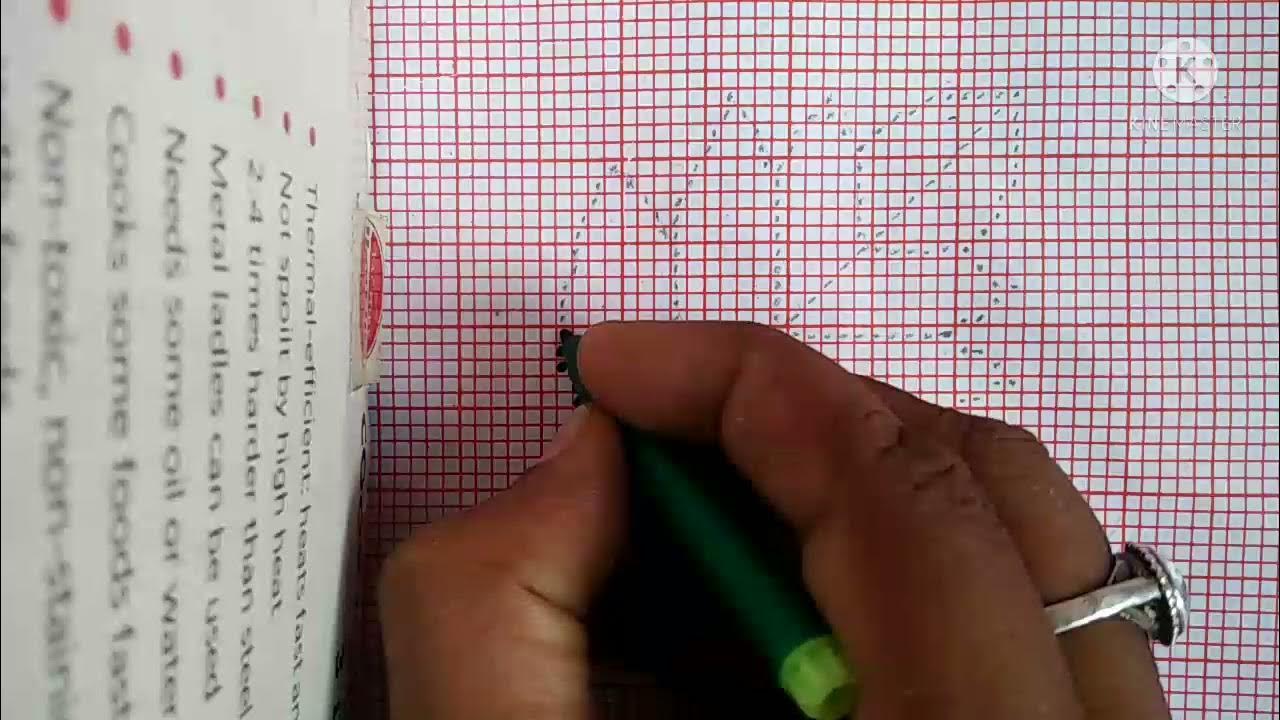 Thermal-efficient: heats fast an
Not spoilt by high heat
2.4 times harder than steel
Metal ladles can be used
Needs some oil or water
Cooks some foods fast
Non-toxic, non-staini
KINEMASTER